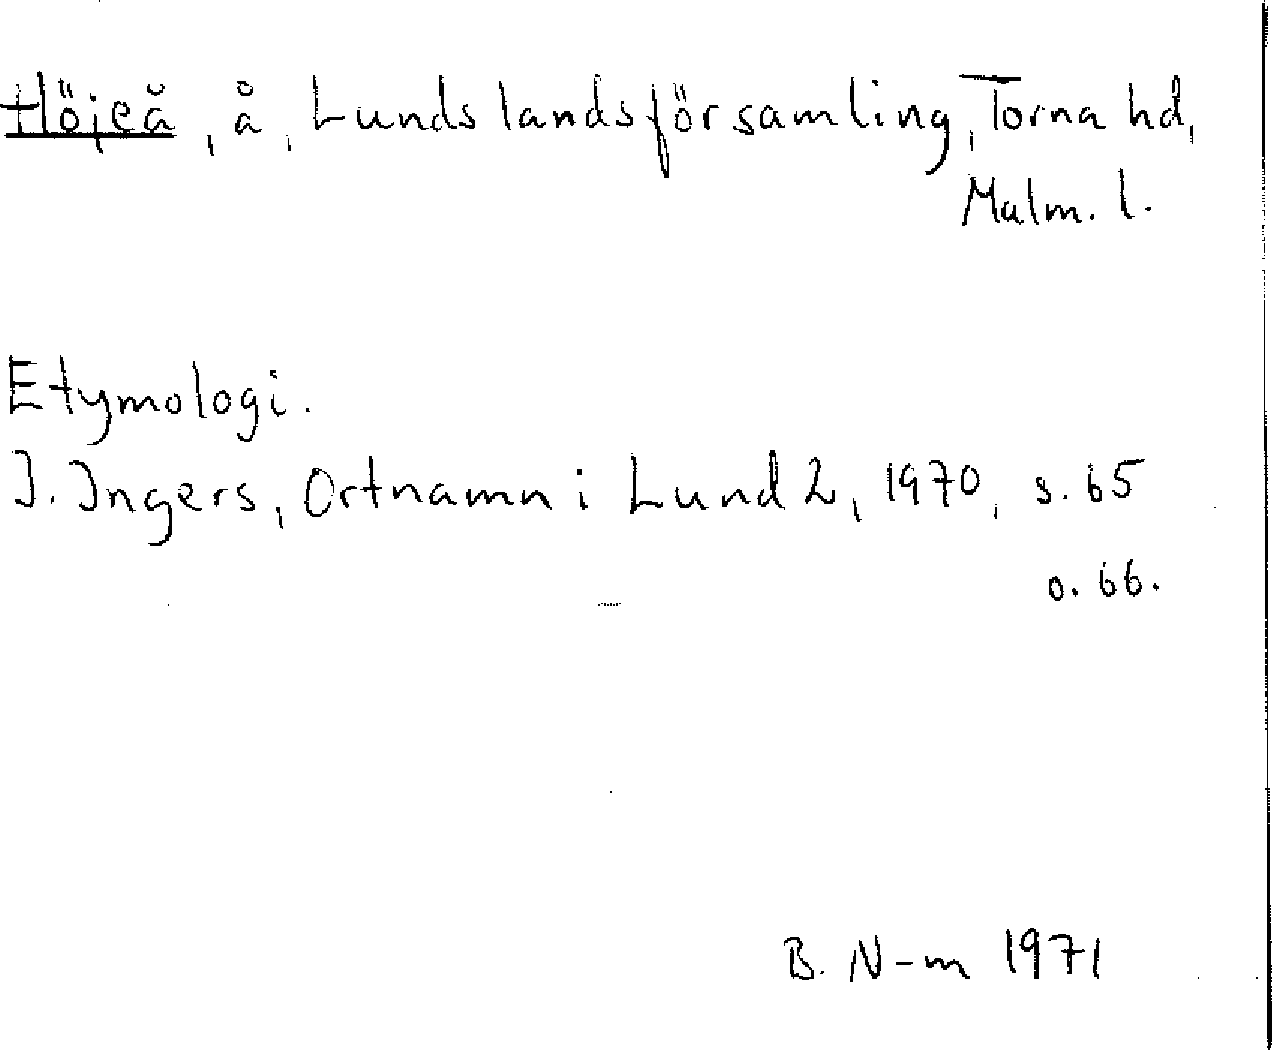 Höjeå, å, Lunds landsförsamling, Torna hd,
Malm. l.
Etymologi.
I. Ingers, Ortnamn i Lund 2, 1970, s. 65
o. 66.
B. N-m 1971